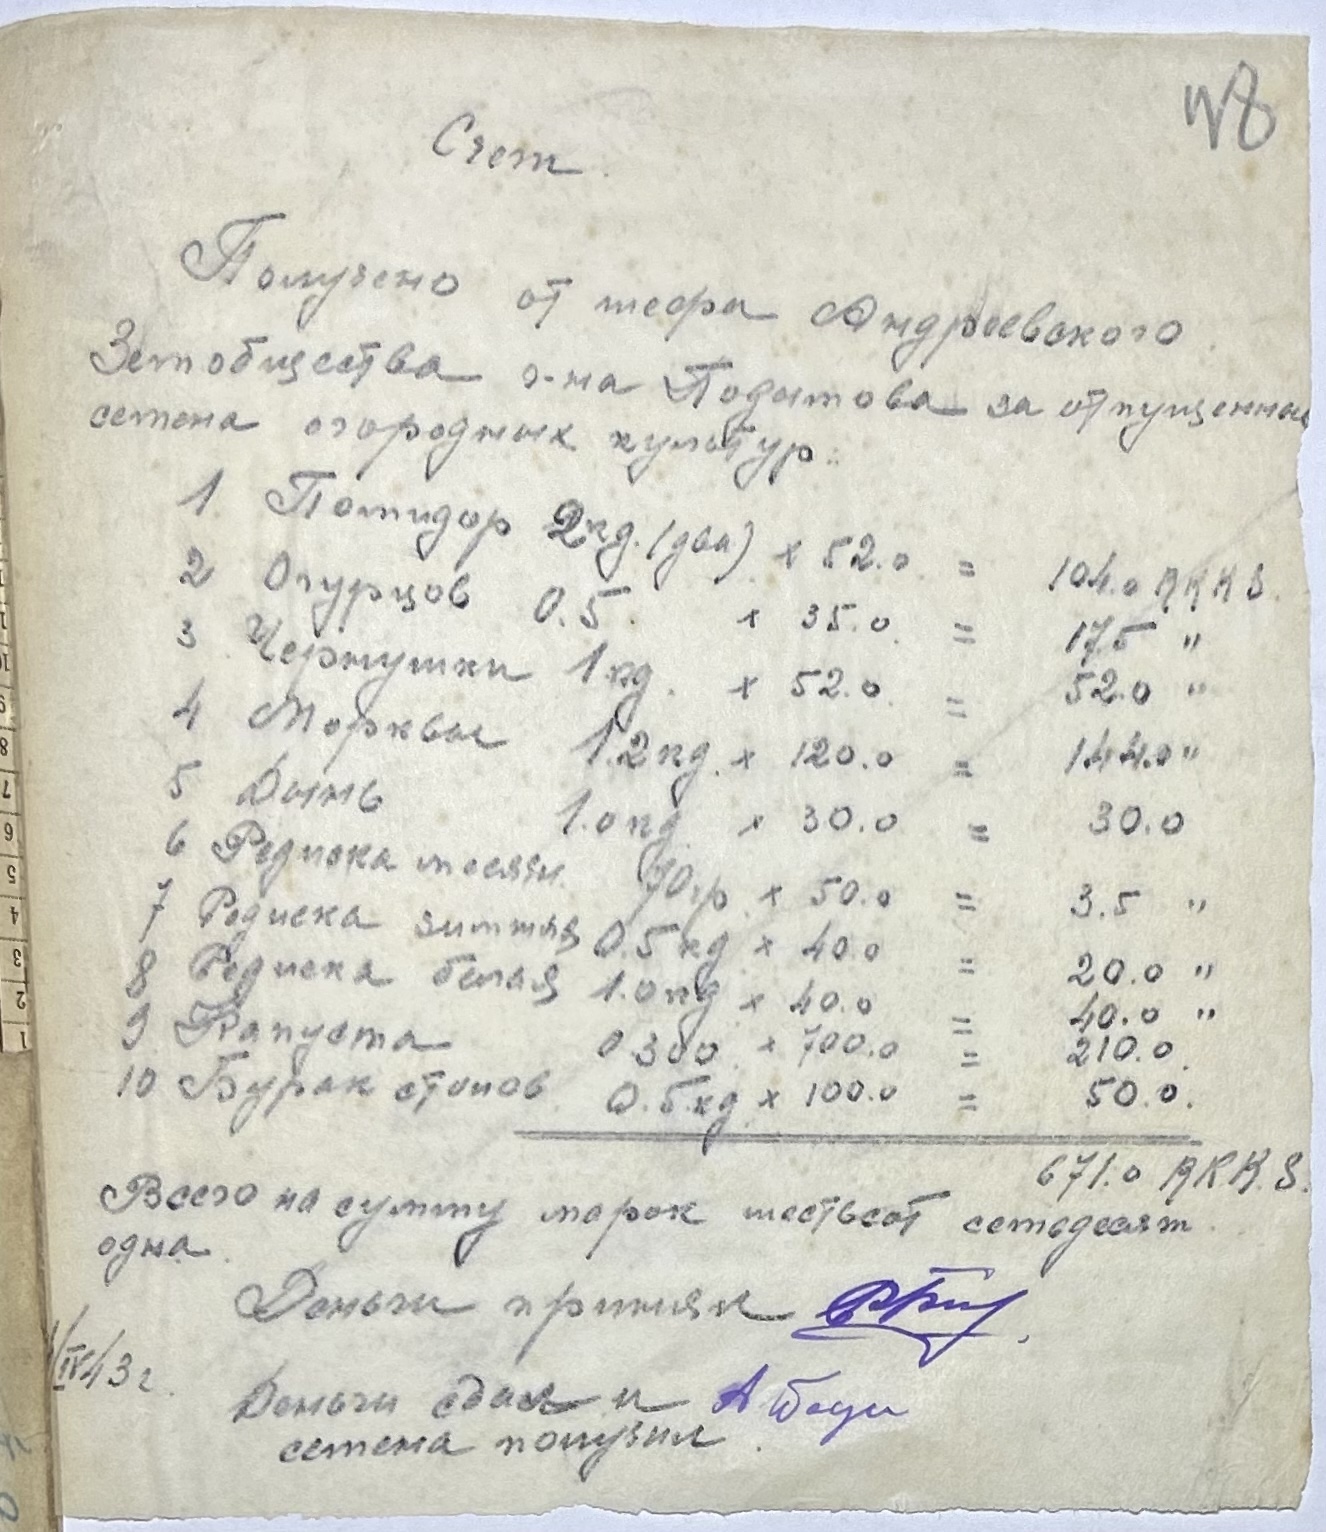 48
Счет.
Получено от шефа Андреевского
Земобщества г-на Подымова за отпущенные
семена огородных культур:
1. Помидор 2кг. (два) x 52.0 = 104.0 RKKS.
2 Огурцов 0.5 x 35.0 = 17.5 "
3 Чернушки 1кг. x 52.0 = 52.0 "
4 Морквы 1.2кг. x 120.0 = 144.0 "
5 Дынь 1.0кг x 30.0 = 30.0
6 Редиска месячн. 70гр x 50.0 = 3.5 "
7 Редиска зимняя 0.5кг x 40.0 = 20.0 "
8 Редиска белая 1.0кг x 40.0 = 40.0 "
9 Капуста 0.300 x 700.0 = 210.0
10 Бурак столов. 0.5кг x 100.0 = 50.0.
671.0 RKKS.
Всего на сумму марок шестьсот семьдесят
одна.
Деньги принял
/IV43г.
Деньги сдал и
семена получил.
1 2 3 4 5 6 7 8 9 10